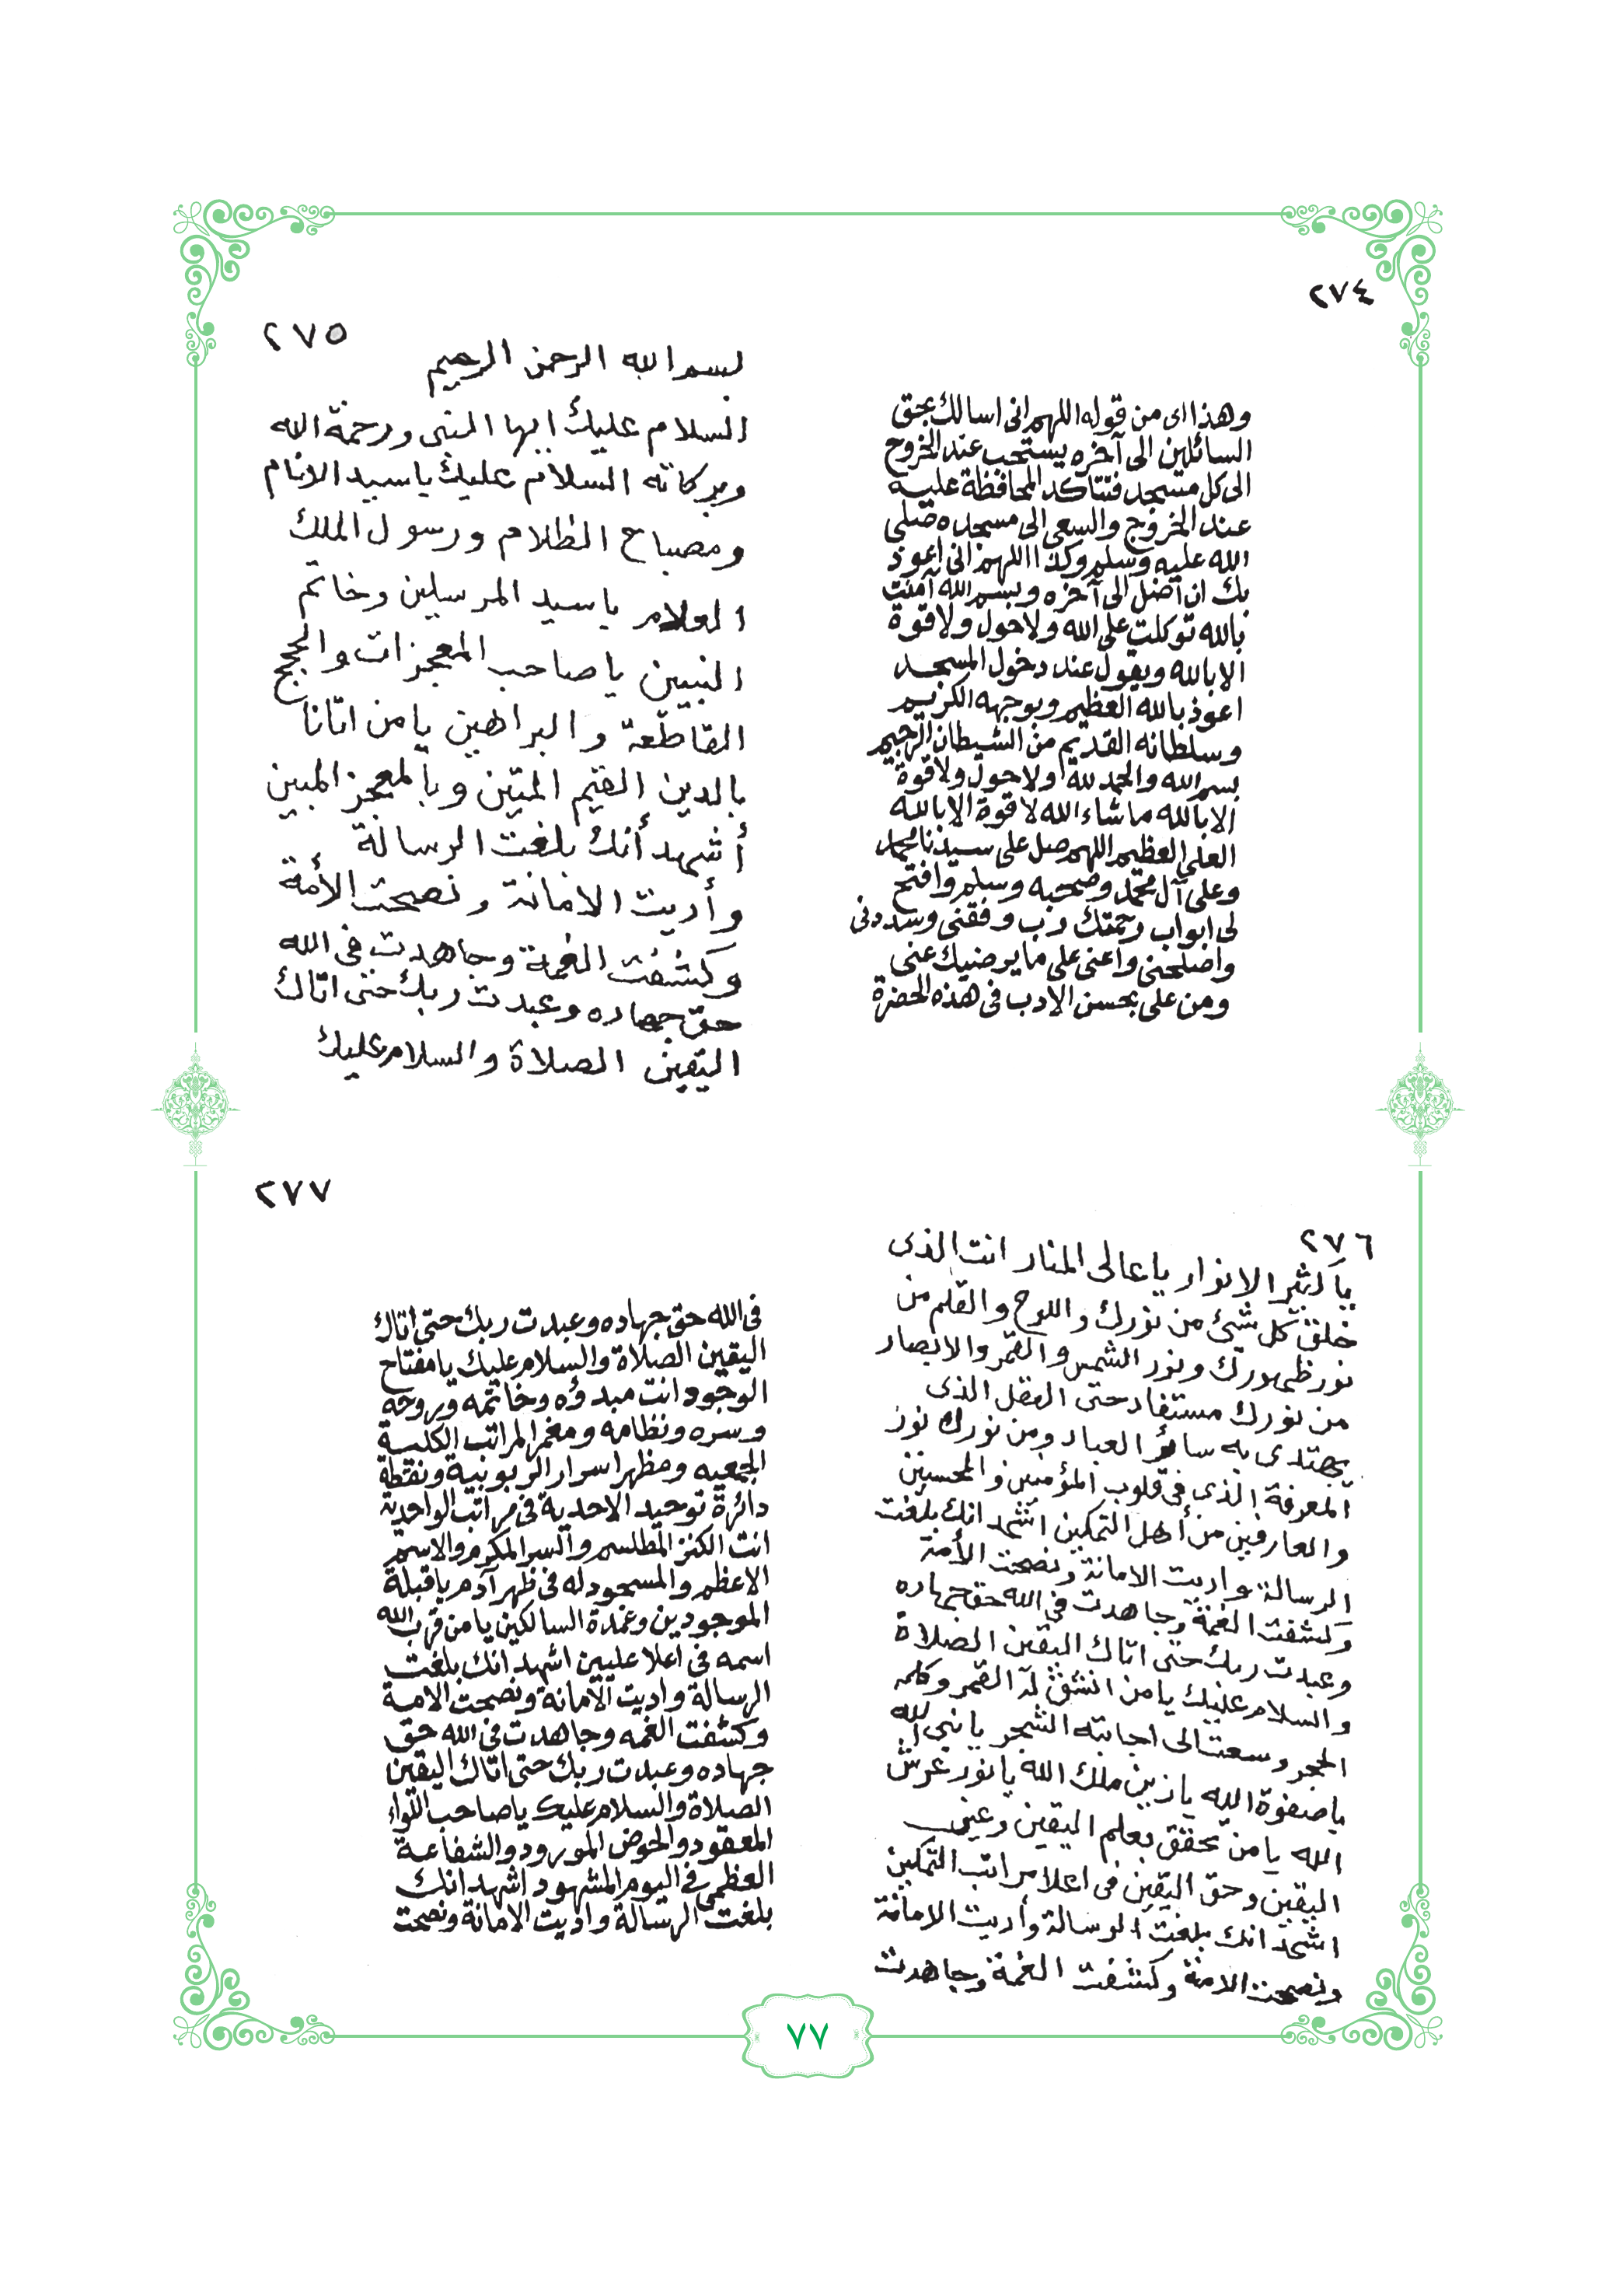 ٢٧٤
وهذا اى من قوله اللهم انى اسالك بحق
السائلين الى آخره يستحب عند الخروج
الى كل مسجد فتتاكد المحافظة عليه
عند الخروج والسعى الى مسجده صلى
الله عليه وسلم وكذا اللهم انى اعوذ
بك ان اضل الى آخره وبسم الله آمنت
بالله توكلت على الله ولاحول ولاقوة
الا بالله ويقول عند دخول المسجد
اعوذ بالله العظيم وبوجهه الكريم
وسلطانه القديم من الشيطان الرجيم
بسم الله والحمد لله ولاحول ولاقوة
الا بالله ماشاء الله لا قوة الا بالله
العلي العظيم اللهم صل على سيدنا محمد
وعلى آل محمد وصحبه وسلم وافتح
لى ابواب رحمتك رب وفقنى وسددنى
واصلحنى واعنى على ما يرضيك عنى
ومن على بحسن الادب فى هذه الحضرة
٢٧٥
بسم الله الرحمن الرحيم
السلام عليك ايها النبى ورحمة الله
وبركاته السلام عليك ياسيد الانام
ومصباح الظلام ورسول الملك
العلام ياسيد المرسلين وخاتم
النبيين ياصاحب المعجزات والحجج
القاطعة والبراهين يامن اتانا
بالدين القيم المتين وبالمعجز المبين
أشهد أنك بلغت الرسالة
وأديت الامانة ونصحت الأمة
وكشفت الغمة وجاهدت فى الله
حق جهاده وعبدت ربك حتى اتاك
اليقين الصلاة والسلام عليك
٢٧٦
ياكثير الانوار ياعالى المنار انت الذى
خلق كل شئ من نورك واللوح والقلم من
نور ظهورك ونور الشمس والقمر والابصار
من نورك مستفاد حتى العقل الذى
يهتدى به سائر العباد ومن نورك نور
المعرفة الذى فى قلوب المؤمنين والمحسنين
والعارفين من أهل التمكين اشهد انك بلغت
الرسالة واديت الامانة ونصحت الأمة
وكشفت الغمة وجاهدت فى الله حق جهاده
وعبدت ربك حتى اتاك اليقين الصلاة
والسلام عليك يامن انشق له القمر وكلمه
الحجر وسعت الى اجابته الشجر يا نبى الله
ياصفوة الله يازين ملك الله يا نور عرش
الله يا من تحقق بعلم اليقين وعين
اليقين وحق اليقين فى اعلا مراتب التمكين
اشهد انك بلغت الرسالة وأديت الامانة
ونصحت الامة وكشفت الغمة وجاهدت
٢٧٧
فى الله حق جهاده وعبدت ربك حتى اتاك
اليقين الصلاة والسلام عليك يا مفتاح
الوجود انت مبدؤه وخاتمه وروحه
وسره ونظامه المراتب الكلية
الجمعيه ومظهر اسرار الربوبية ونقطة
دائرة توحيد الاحدية فى مراتب الواحدية
انت الكنز المطلسم والسر المكرم والاسم
الاعظم والمسجود له فى ظهر آدم ياقبلة
الموجودين وعمدة السالكين يا من قرب الله
اسمه فى اعلا عليين اشهد انك بلغت
الرسالة واديت الامانة ونصحت الامة
وكشفت الغمه وجاهدت فى الله حق
جهاده وعبدت ربك حتى اتاك اليقين
الصلاة والسلام عليك ياصاحب اللواء
المعقود والحوض المورود والشفاعة
العظمى فى اليوم المشهود اشهد انك
بلغت الرسالة واديت الامانة ونصحت
٧٧